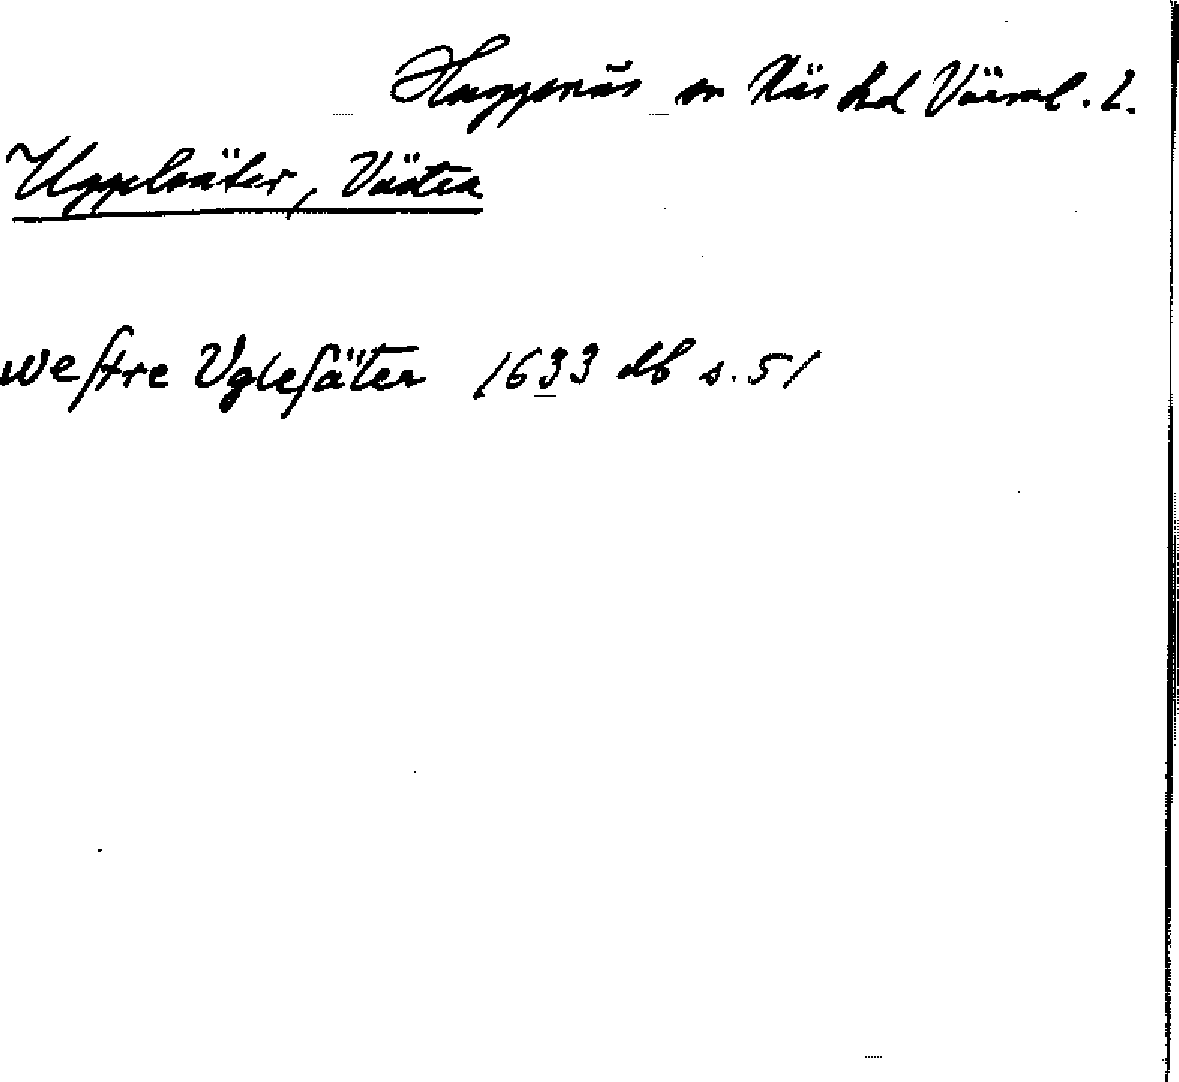 Huggenäs sn Näs hd Värml. l.
Upplsäter, Västra
weſtre Vgleſäter 1633 db s. 51